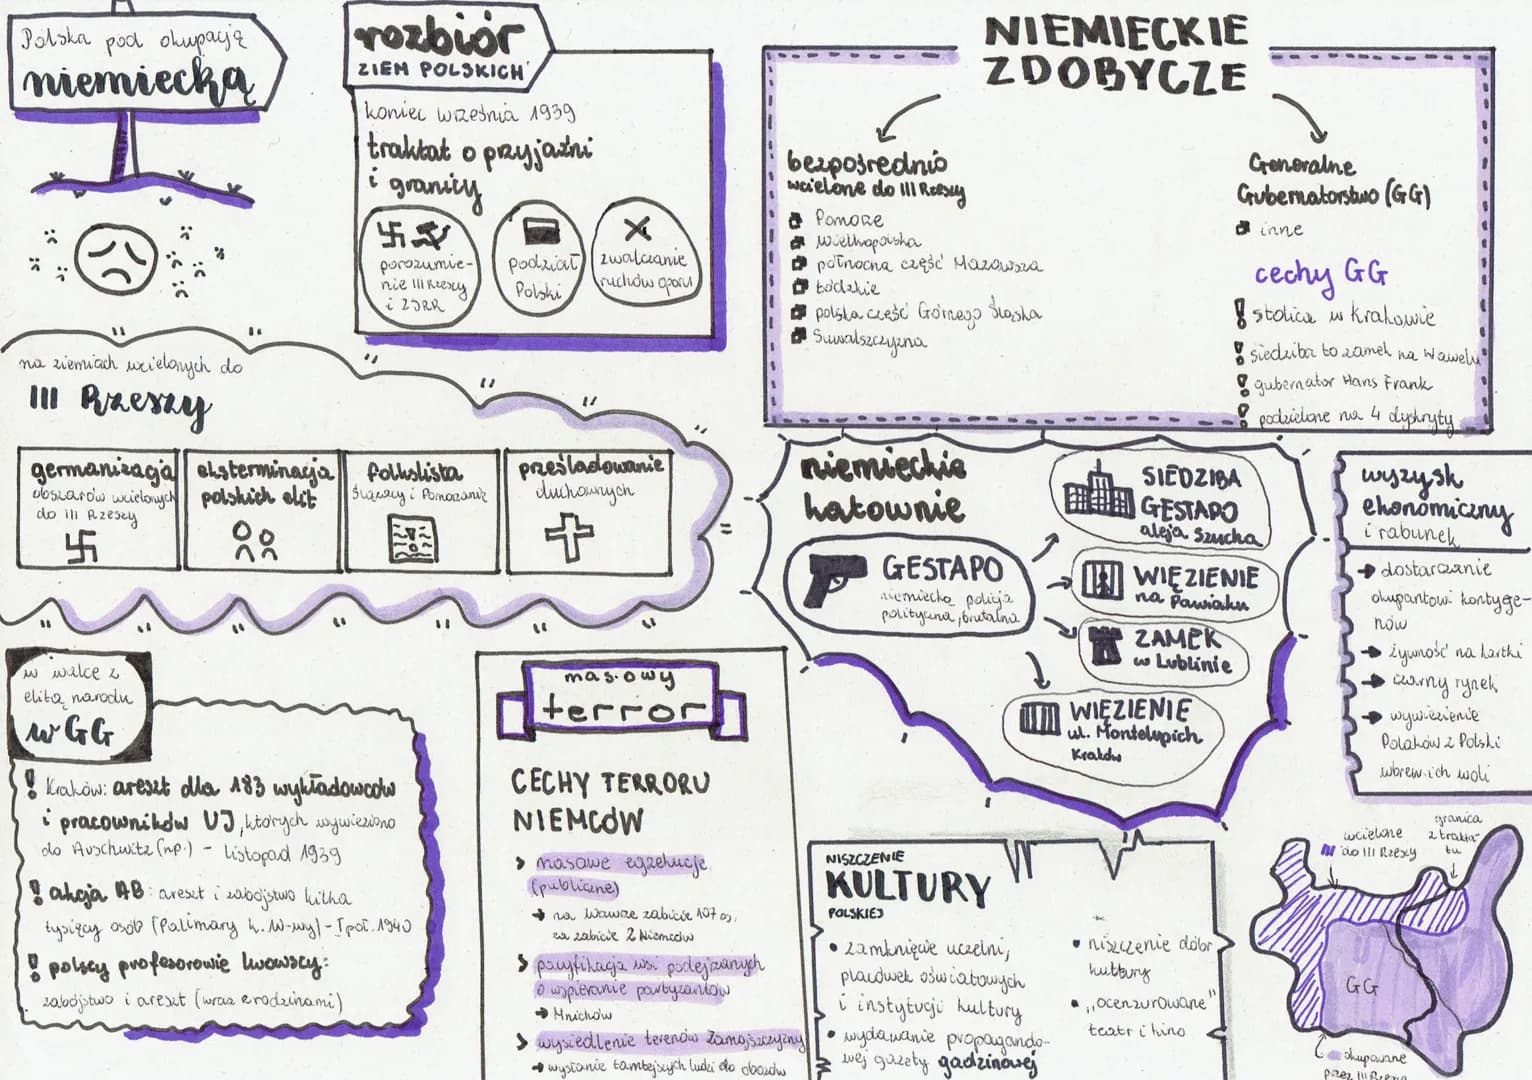 Polska pod okupacją
niemiecką
rozbiór
ZIEM POLSKICH
koniec września 1939
traktat o przyjaźni
i granicy
porozumie-
nie III Rzeszy
i ZSRR
podział
Polski
zwalczanie
ruchów oporu
NIEMIECKIE
ZDOBYCZE
bezpośrednio
wcielone do III Rzeszy
Pomorze
Wielkopolska
północna część Mazowsza
Łódzkie
polska część Górnego Śląska
Suwalszczyzna
Generalne
Gubernatorstwo (GG)
inne
cechy GG
stolica w Krakowie
siedziba to zamek na Wawelu
gubernator Hans Frank
podzielone na 4 dystrykty
na ziemiach wcielonych do
III Rzeszy
germanizacja
obszarów wcielonych
do III Rzeszy
eksterminacja
polskich elit
folkslista
Ślązacy i Pomorzanie
prześladowanie
duchownych
niemieckie
katownie
GESTAPO
niemiecka policja
polityczna, brutalna
SIEDZIBA
GESTAPO
aleja Szucha
WIĘZIENIE
na Pawiaku
ZAMEK
w Lublinie
WIĘZIENIE
ul. Montelupich
Kraków
wyzysk
ekonomiczny
i rabunek
dostarczanie
okupantowi kontyge-
nów
żywność na kartki
czarny rynek
wywiezienie
Polaków z Polski
wbrew ich woli
w walce z
elitą narodu
w GG
Kraków: areszt dla 183 wykładowców
i pracowników UJ, których wywieziono
do Auschwitz (np.) - listopad 1939
akcja AB: areszt i zabójstwo kilka
tysięcy osób (Palimary k. W-wy) - I poł. 1940
polscy profesorowie lwowscy:
zabójstwo i areszt (wraz z rodzinami)
masowy
terror
CECHY TERRORU
NIEMCÓW
masowe egzekucje
(publiczne)
na Wawrze zabicie 107 os.
za zabicie 2 Niemców
pacyfikacja wsi podejrzanych
o wspieranie partyzantów
Mnichów
wysiedlenie terenów Zamojszczyzny
wysłanie tamtejszych ludzi do obozów
NISZCZENIE
KULTURY
POLSKIEJ
zamknięcie uczelni,
placówek oświatowych
i instytucji kultury
wydawanie propagando-
wej gazety gadzinowej
niszczenie dóbr
kultury
"ocenzurowane"
teatr i kino
wcielone
do III Rzeszy
granica
z trakta-
tu
GG
okupowane
przez III Rzeszę